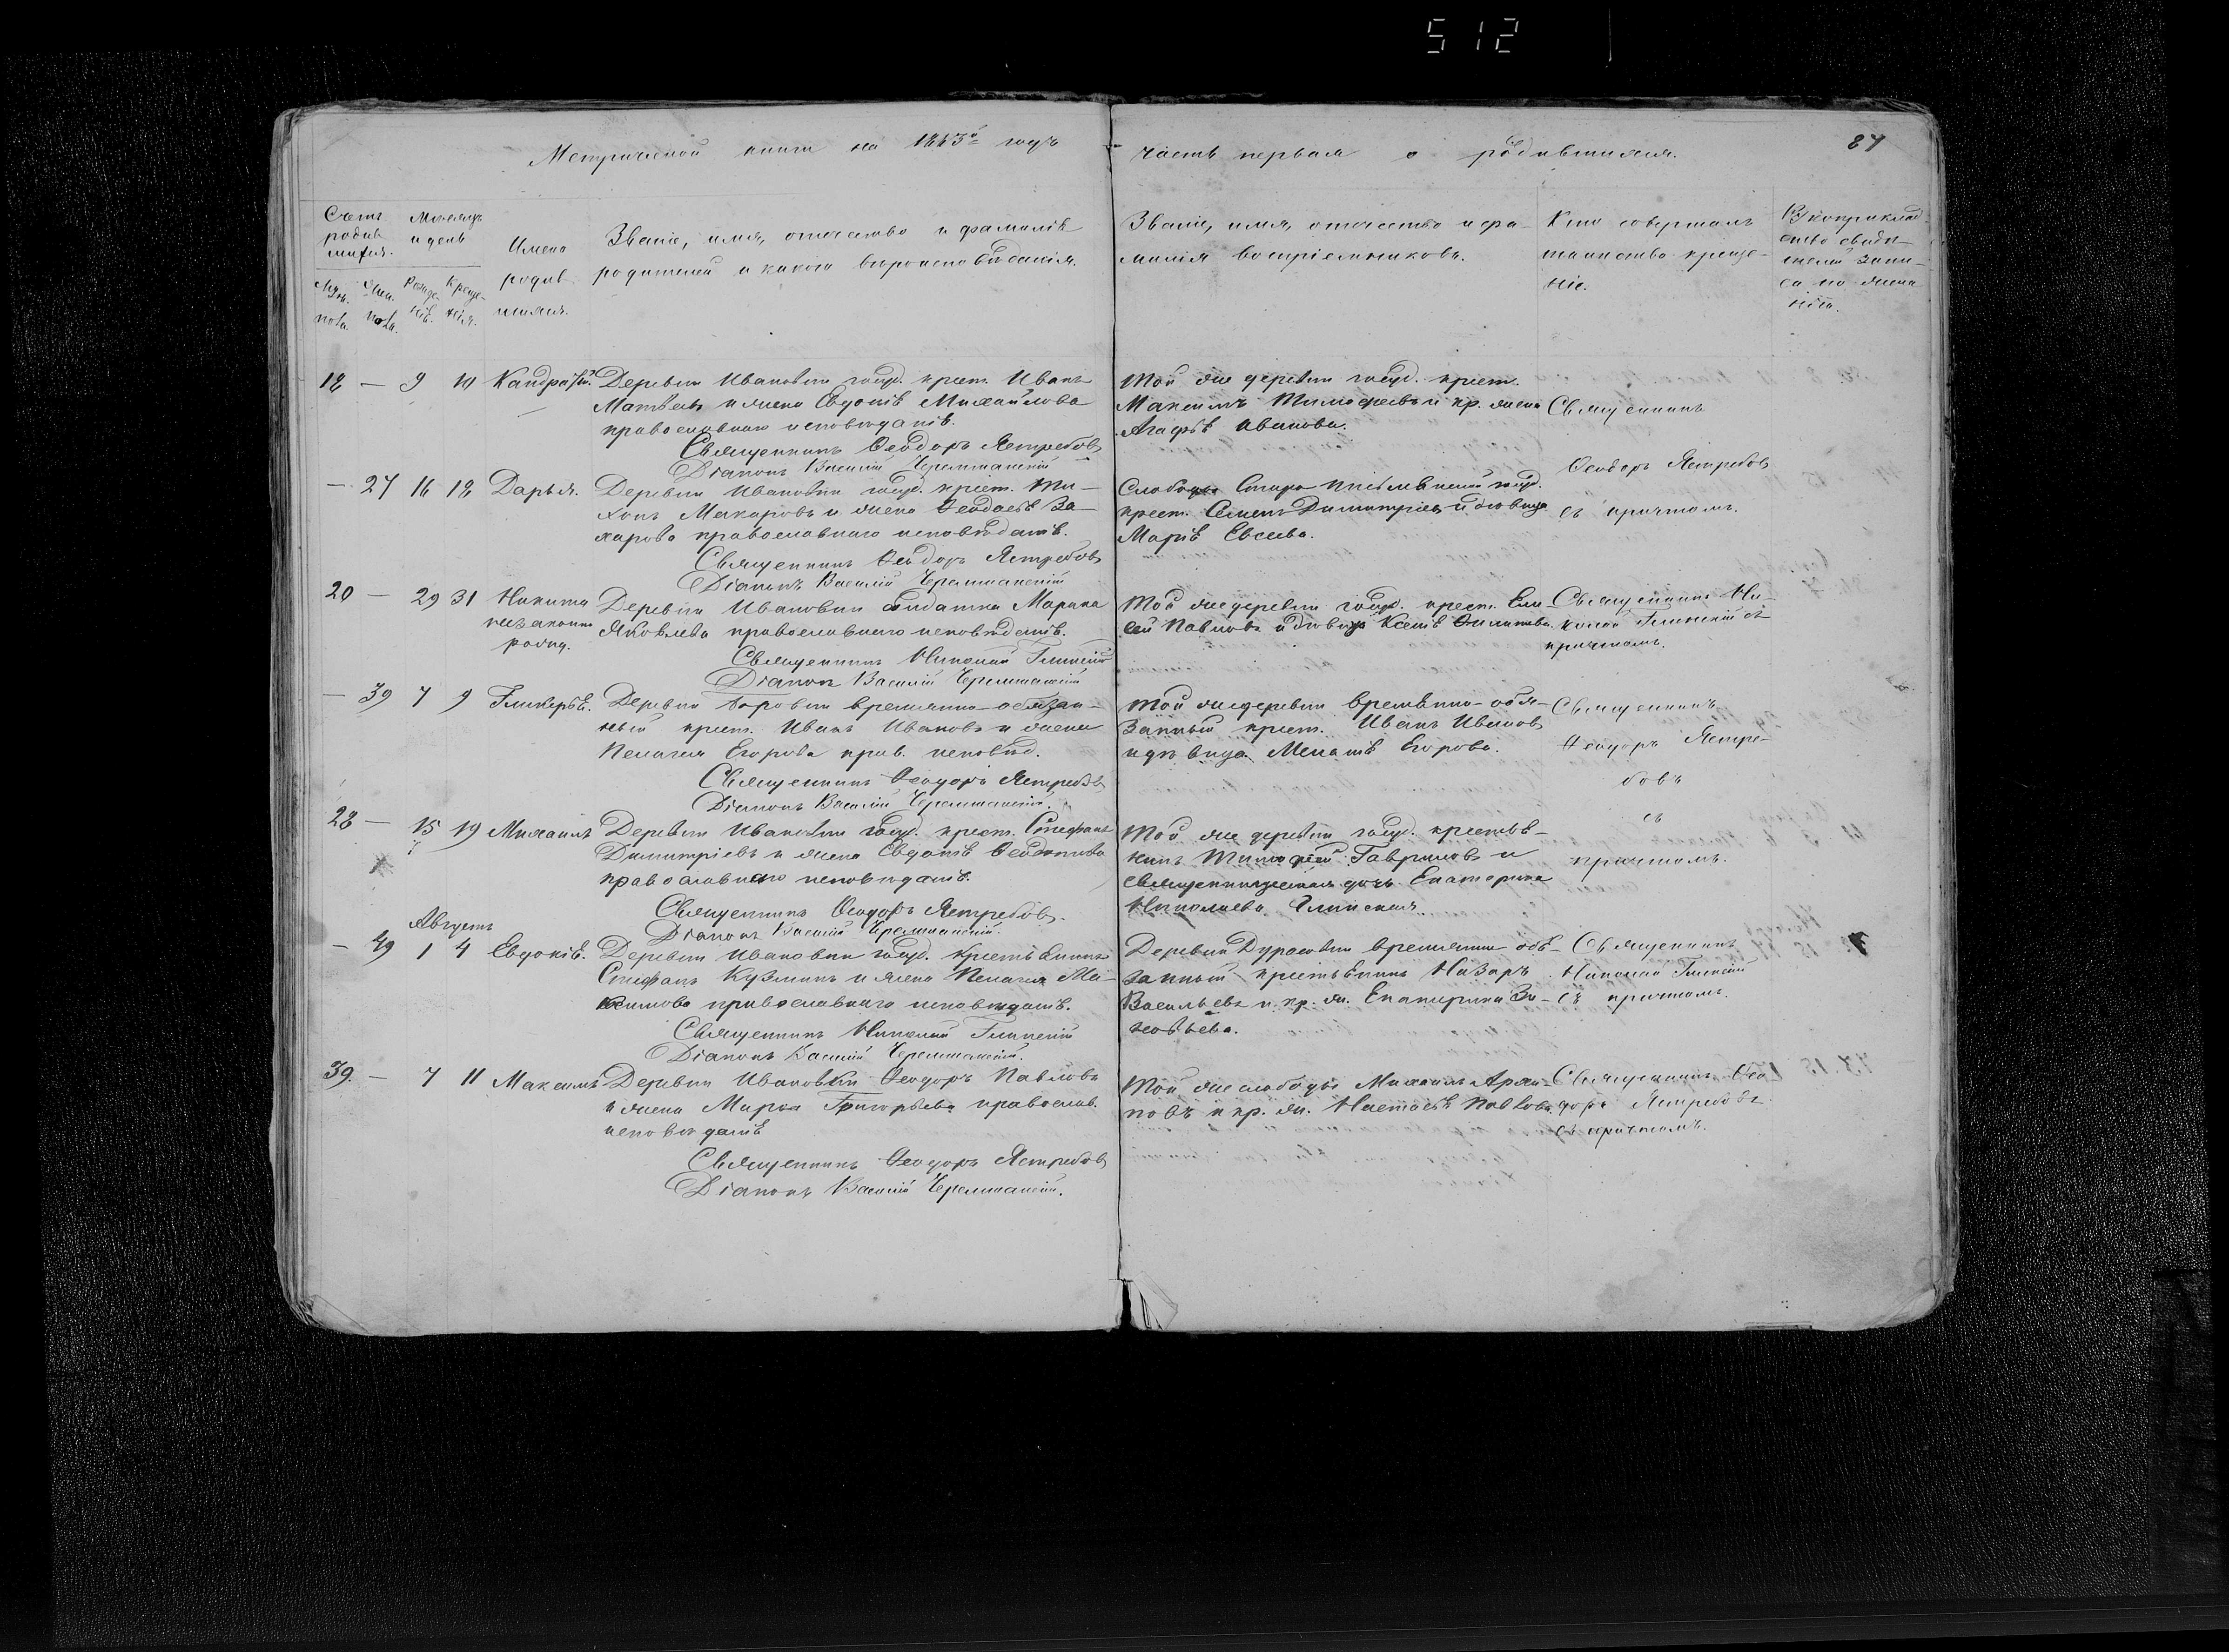 512
Метрической книги на 1863й годъ
часть первая о родившихся.
87
Счетъ родив шихся.
Мѣсяцъ и день
Имена родив шихся.
Званіе, имя, отчество и фамилія
родителей и какого вѣроисповѣданія.
Званіе, имя, отчество и фа-
милія воспріемниковъ.
Кто совершалъ
таинство креще-
ніе.
Рукоприклад
ство свидѣ-
телей запи-
си по жела
нію.
Муж. пола. Жен. пола. Рожде нія. Креще- нія.
18 — 9 10 Кандратій. Деревни Ивановки госуд. крест. Иванъ
Матвѣевъ и жена Евдокія Михайлова
православнаго исповѣданія.
Священникъ Ѳеодоръ Ястребовъ
Діаконъ Василій Черемшанскій
Той же деревни госуд. крест.
Максимъ Тимофеевъ и кр. жена
Агафія Иванова.
Священникъ
Ѳеодоръ Ястребовъ
съ причтомъ.
— 27 16 18 Дарья. Деревни Ивановки госуд. крест. Ти-
хонъ Макаровъ и жена Ѳеодосія За-
харова православнаго исповѣданія.
Священникъ Ѳеодоръ Ястребовъ
Діаконъ Василій Черемшанскій
Слободы Старо Письмянской госуд.
крест. Семенъ Димитріевъ и вдовица
Марія Евсеева.
20 — 29 31 Никита
незаконно
рожд.
Деревни Ивановки солдатка Марина
Яковлева православнаго исповѣданія.
Священникъ Николай Глинскій
Діаконъ Василій Черемшанскій
Той же деревни госуд. крест. Ели-
сей Павловъ и вдовица Ксенія Филипова.
Священникъ Ни-
колай Глинскій съ
причтомъ.
— 39 7 9 Гликерія. Деревни Боровки временно-обязан-
ный крест. Иванъ Ивановъ и жена
Пелагея Егорова прав. исповѣд.
Священникъ Ѳеодоръ Ястребовъ
Діаконъ Василій Черемшанскій.
Той же деревни временно-обя-
занный крест. Иванъ Ивановъ
и дѣвица Меланія Егорова.
Священникъ
Ѳеодоръ Ястре-
бовъ
съ
причтомъ.
28 — 15 19 Михаилъ Деревни Ивановки госуд. крест. Стефанъ
Димитріевъ и жена Евдокія Ѳеодотова
православнаго исповѣданія.
Священникъ Ѳеодоръ Ястребовъ.
Діаконъ Василій Черемшанскій.
Той же деревни госуд. крестья-
нинъ Тимофей Гавриловъ и
священническая дочь Екатерина
Николаева Глинская.
Августъ
— 49 1 4 Евдокія. Деревни Ивановки госуд. крестьянинъ
Стефанъ Кузминъ и жена Пелагея Ма-
ксимова православнаго исповѣданія.
Священникъ Николай Глинскій
Діаконъ Василій Черемшанскій.
Деревни Дурасовки временно обя-
занный крестьянинъ Назаръ
Васильевъ и кр. ж. Екатерина Зи-
новьева.
Священникъ
Николай Глинскій
съ причтомъ.
39. — 7 11 Максимъ Деревни Ивановки Ѳеодоръ Павловъ
и жена Марья Григорьева православ.
исповѣданія
Священникъ Ѳеодоръ Ястребовъ
Діаконъ Василій Черемшанскій.
Той же слободы Михаилъ Архи-
повъ и кр. ж. Настасья Павлова.
Священникъ Ѳео
доръ Ястребовъ
съ причтомъ.